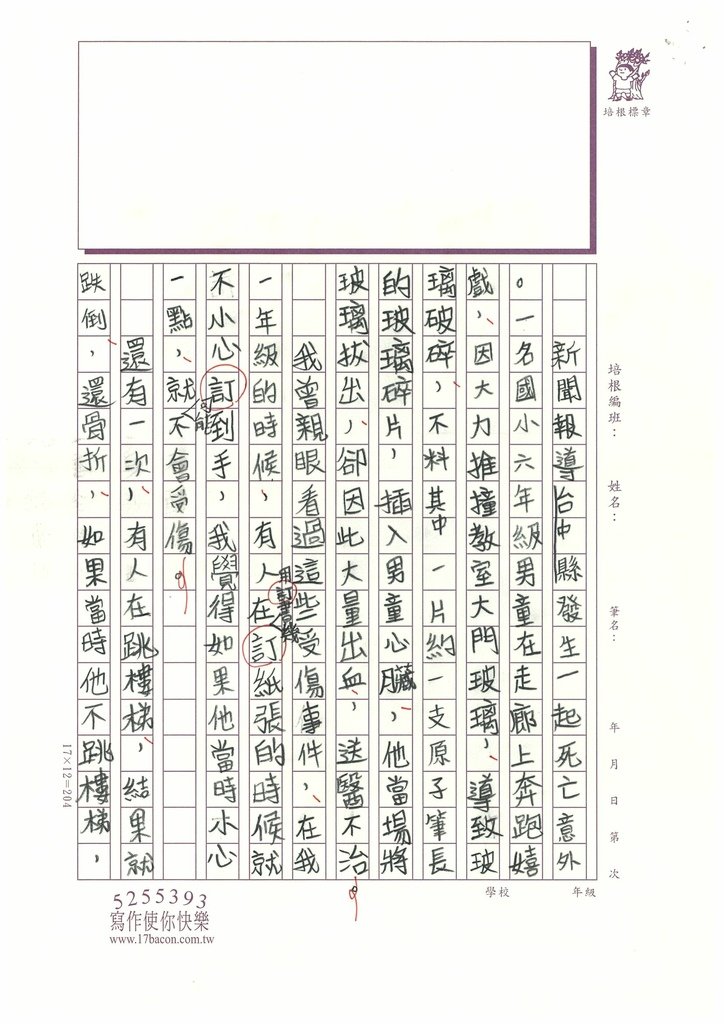 培根標章
培根編班： 姓名： 筆名： 年 月 日 第 次
學校 年級
新聞報導台中縣發生一起死亡意外
。一名國小六年級男童在走廊上奔跑嬉
戲，因大力推撞教室大門玻璃，導致玻
璃破碎，不料其中一片約一支原子筆長
的玻璃碎片，插入男童心臟，他當場將
玻璃拔出，卻因此大量出血，送醫不治。
我曾親眼看過這些受傷事件，在我
一年級的時候，有人在訂紙張的時候就
用訂書機
不小心訂到手，我覺得如果他當時小心
一點，就不會受傷。
可能
還有一次，有人在跳樓梯，結果就
跌倒，還骨折，如果當時他不跳樓梯，
17×12=204
5255393
寫作使你快樂
www.17bacon.com.tw